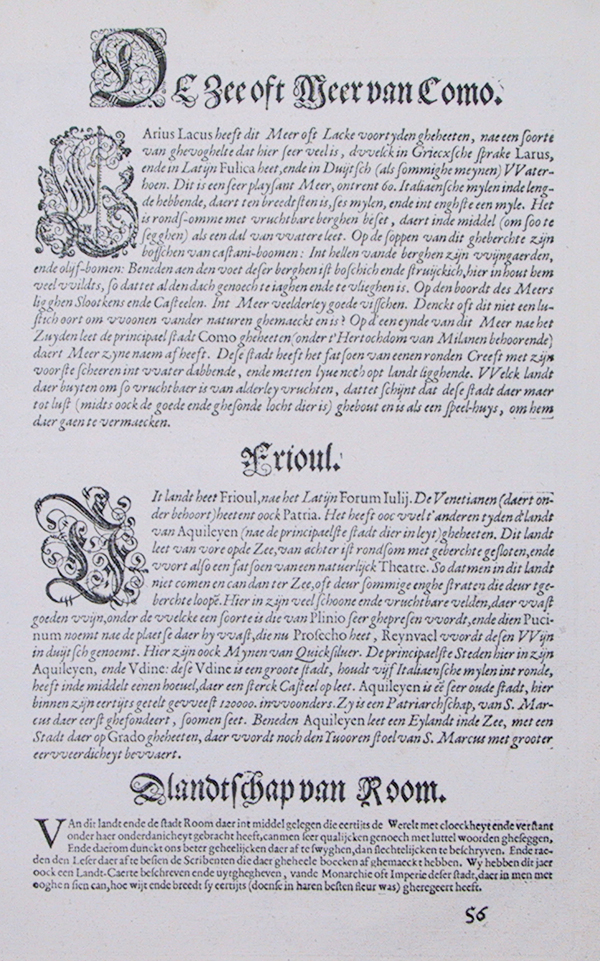 DE Zee oft Meer van Como.
LArius Lacus heeft dit Meer oft Lacke voortyden gheheeten, nae een soorte
van ghevoghelte dat hier seer veel is, dvvelck in Griecxsche sprake Larus,
ende in Latijn Fulica heet, ende in Duijtsch (als sommighe meynen) VVater-
hoen. Dit is een seer playsant Meer, ontrent 60. Italiaensche mylen inde leng-
de hebbende, daert ten breedtsten is, ses mylen, ende int enghste een myle. Het
is rondsj-omme met vruchtbare berghen beset, daert inde middel (om soo te
segghen) als een dal van vvatere leet. Op de soppen van dit gheberchte zijn
bosschen van castani-boomen: Int hellen vande berghen zijn vvijngaerden,
ende olijf-bomen: Beneden aen den voet deser berghen ist boschich ende struijckich, hier in hout hem
veel vvildts, so dattet al den dach genoech te iaghen ende te vlieghen is. Op den boordt des Meers
ligghen Slootkens ende Casteelen. Int Meer veelderley goede visschen. Denckt oft dit niet een lu-
stich oort om vvoonen vander naturen ghemaeckt en is? Op d'een eynde van dit Meer nae het
Zuyden leet de principael stadt Como gheheeten (onder t'Hertochdom van Milanen behoorende)
daert Meer zyne naem af heeft. Dese stadt heeft het fatsoen van eenen ronden Creeft met zijn
voorste scheeren int vvater dabbende, ende metten lyue noch opt landt ligghende. VVelck landt
daer buyten om so vruchtbaer is van alderley vruchten, dattet schijnt dat dese stadt daer maer
tot lust (midts oock de goede ende ghesonde locht dier is) ghebout en is als een speel-huys, om hem
daer gaen te vermaecken.
Frioul.
DIt landt heet Frioul, nae het Latijn Forum Iulij. De Venetianen (daert on-
der behoort) heetent oock Patria. Het heeft ooc vvel t'anderen tyden d'landt
van Aquileyen (nae de principaelste stadt dier in leyt) gheheeten. Dit landt
leet van vore op de Zee, van achter ist rondsom met geberchte gesloten, ende
vvort also een fatsoen van een natuerlijck Theatre. So datmen in dit landt
niet comen en can dan ter Zee, oft deur sommige enghe straten die deur tge-
berchte loopẽ. Hier in zijn veel schoone ende vruchtbare velden, daer vvast
goeden vvijn, onder de vvelcke een soorte is die van Plinio seer ghepresen vvordt, ende dien Puci-
num noemt nae de plaetse daer hy vvast, die nu Prosecho heet, Reynvael vvordt desen VVijn
in duijtsch genoemt. Hier zijn oock Mynen van Quicksiluer. De principaelste Steden hier in zijn
Aquileyen, ende Vdine: dese Vdine is een groote stadt, houdt vijf Italiaensche mylen int ronde,
heeft inde middelt eenen hoeuel, daer een sterck Casteel op leet. Aquileyen is eẽ seer oude stadt, hier
binnen zijn eertijts getelt gevveest 120000. invvoonders. Zy is een Patriarchschap, van S. Mar-
cus daer eerst ghefondeert, soomen seet. Beneden Aquileyen leet een Eylandt inde Zee, met een
Stadt daer op Grado gheheeten, daer vvordt noch den Yuooren stoel van S. Marcus met grooter
eervveerdicheyt bevvaert.
Dlandtschap van Room.
VAn dit landt ende de stadt Room daer int middel gelegen die eertijts de Werelt met cloeckheyt ende verstant
onder haer onderdanicheyt gebracht heeft, canmen seer qualijcken genoech met luttel woorden gheseggen,
Ende daerom dunckt ons beter geheelijcken daer af te swyghen, dan slechtelijcken te beschryven. Ende rae-
den den Leser daer af te besien de Scribenten die daer gheheele boecken af ghemaeckt hebben. Wy hebben dit jaer
oock een Landt-Caerte beschreven ende uytghegheven, vande Monarchie oft Imperie deser stadt, daer in men met
ooghen sien can, hoe wijt ende breedt sy eertijts (doense in haren besten fleur was) gheregeert heeft.
56